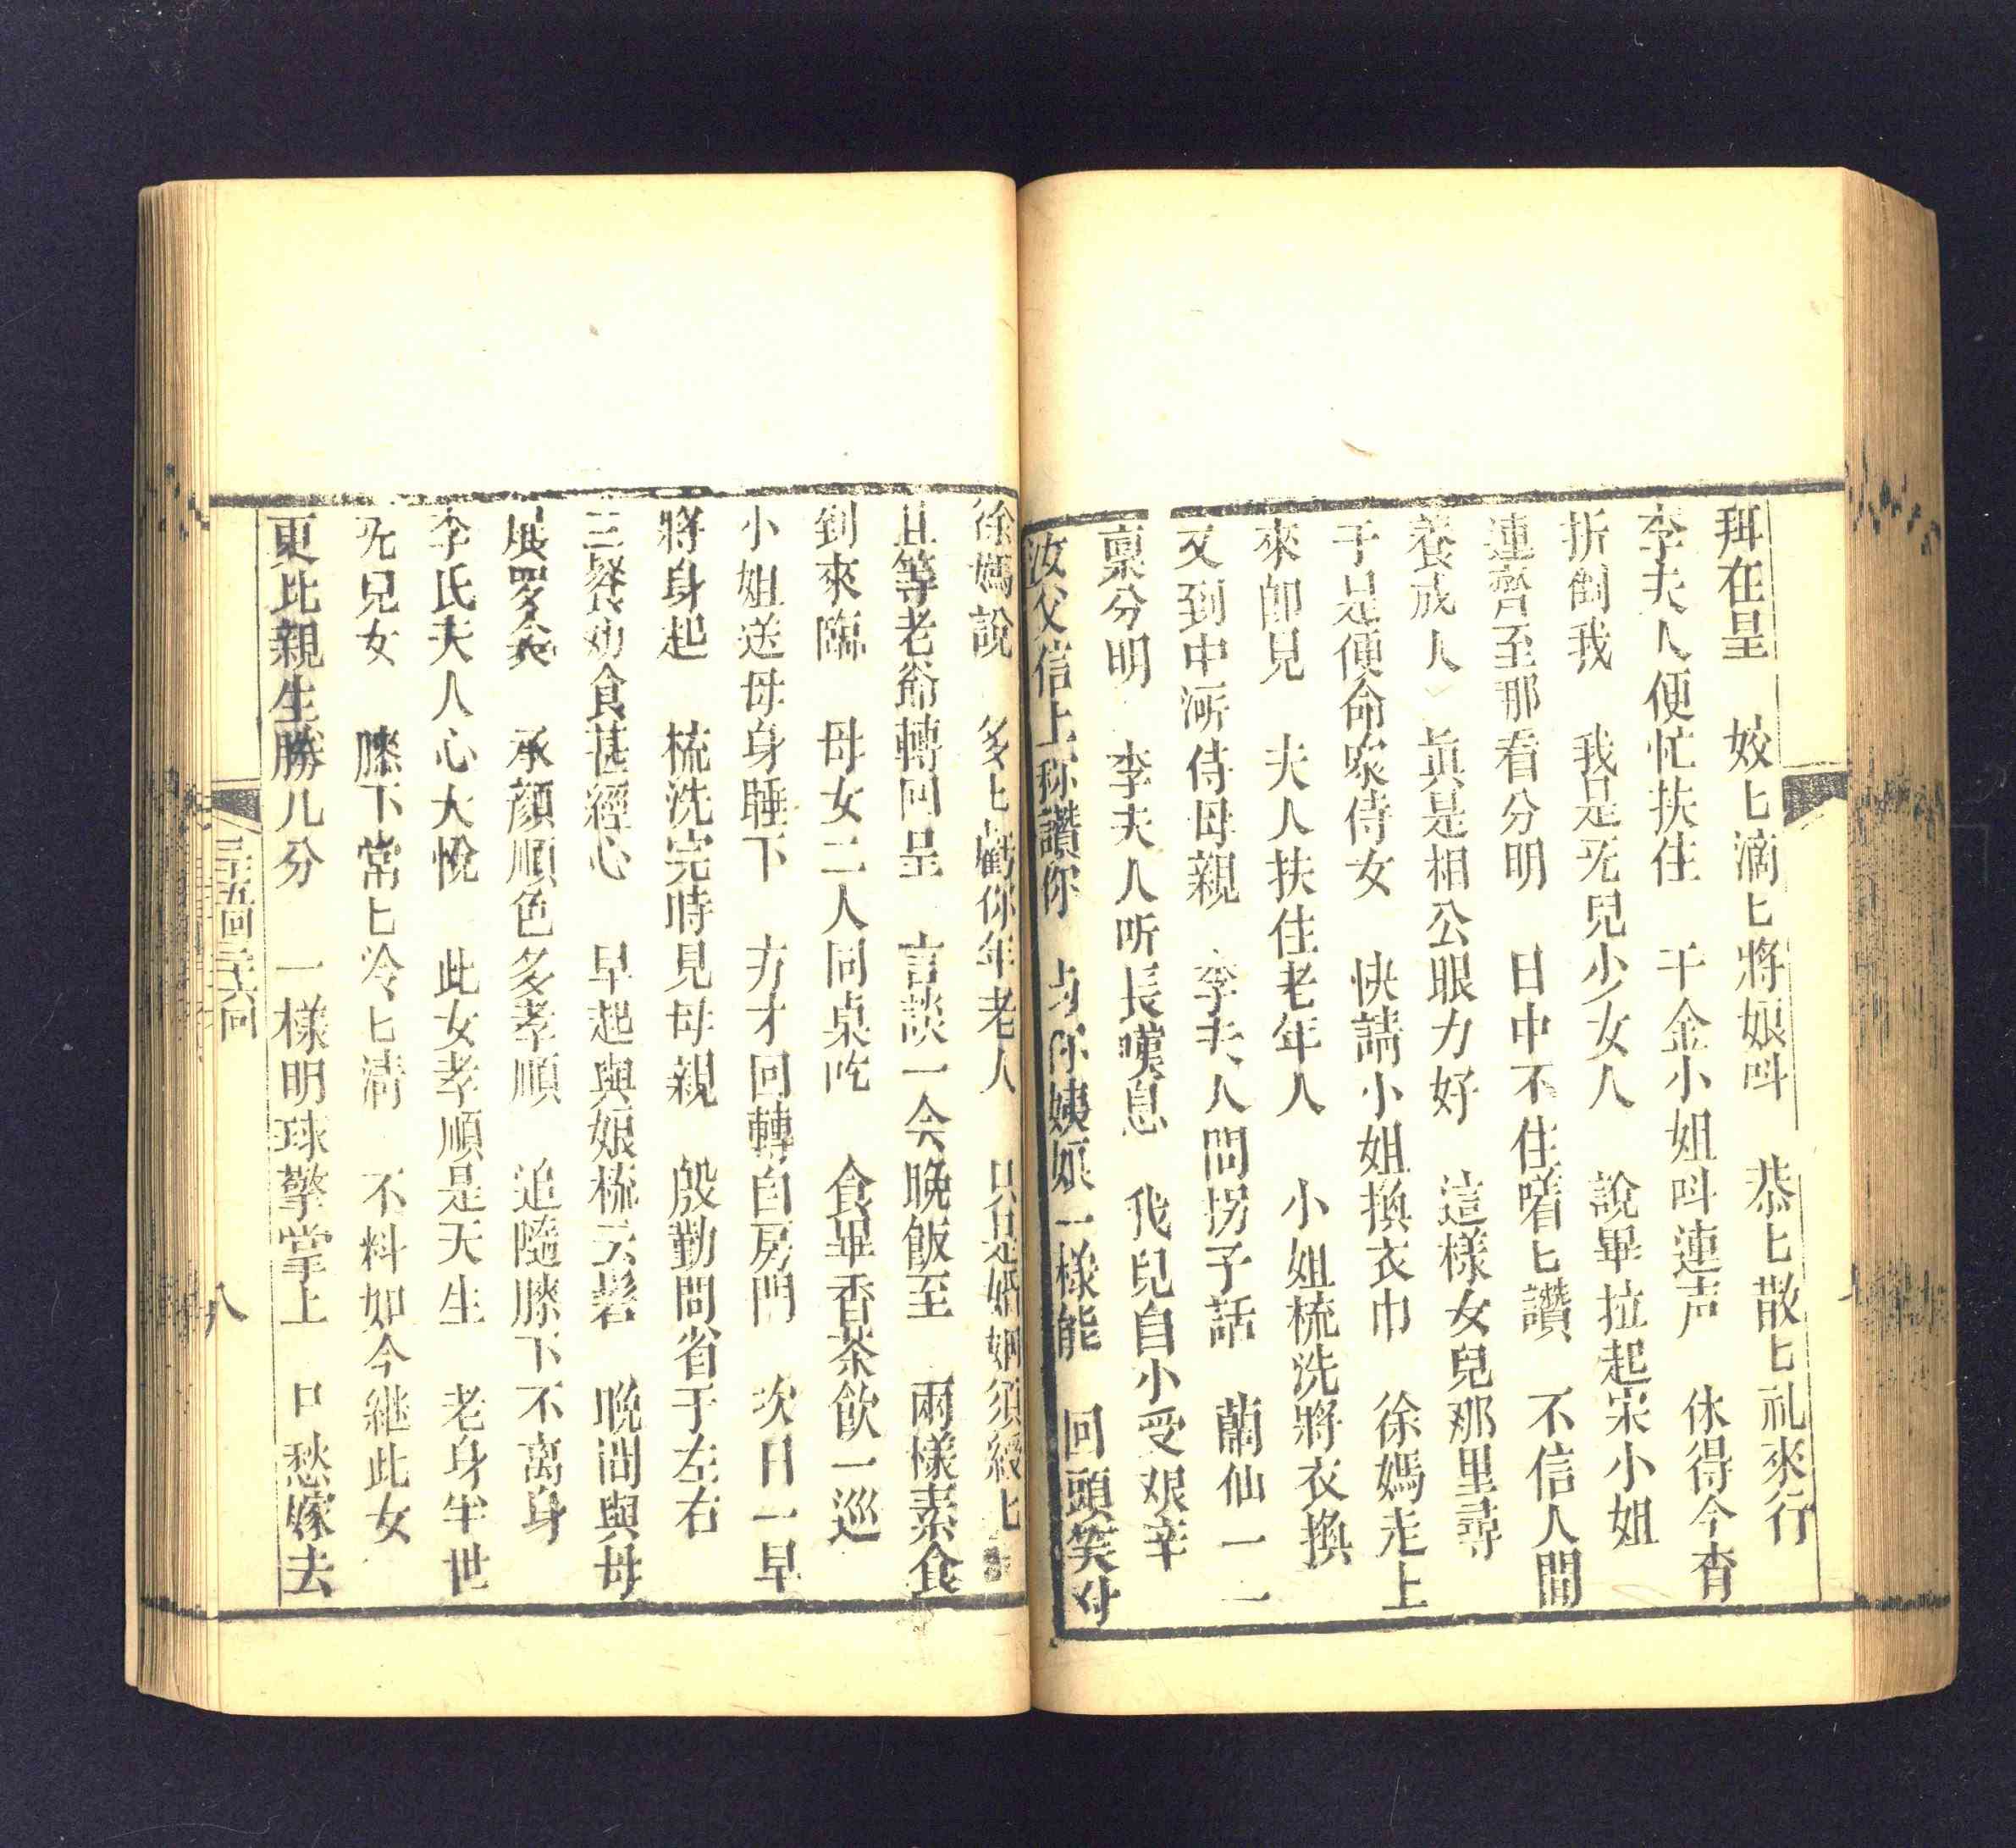 拜在皇　姣匕滴匕將娘呌　恭匕敬匕礼來行
李夫人便忙扶住　千金小姐呌連声　休得今宵
折倒我　我是死兒少女人　說畢拉起宋小姐
連齊至那看分明　日中不住喈匕讚　不信人間
養成人　眞是相公眼力好　這樣女兒那里尋
于是便命家侍女　快請小姐換衣巾　徐媽走上
來卽見　夫人扶住老年人　小姐梳洗將衣換
又到中所侍母親　李夫人問拐子話　蘭仙一一
稟分明　李夫人听長嘆息　我兒自小受艰辛
汝父信上称讚你　与你姨娘一樣能　回頭笑对
徐媽說　多匕虧你年老人　只是婚姻須緩匕
且等老爺轉回呈　言談一会晚飯至　兩樣素食
到來臨　母女二人同桌吃　食畢香茶飲一巡
小姐送母身睡下　方才回轉自房門　次日一早
將身起　梳洗完時見母親　殷勤問省于左右
三餐劝食甚經心　早起與娘梳云髻　晚間與母
承顏順色多孝順　追隨膝下不离身
李氏夫人心大悅　此女孝順是天生　老身半世
死兒女　膝下常匕冷匕清　不料如今継此女
更比親生勝几分　一樣明珠擎掌上　愁嫁去
三十五回三十六回
八